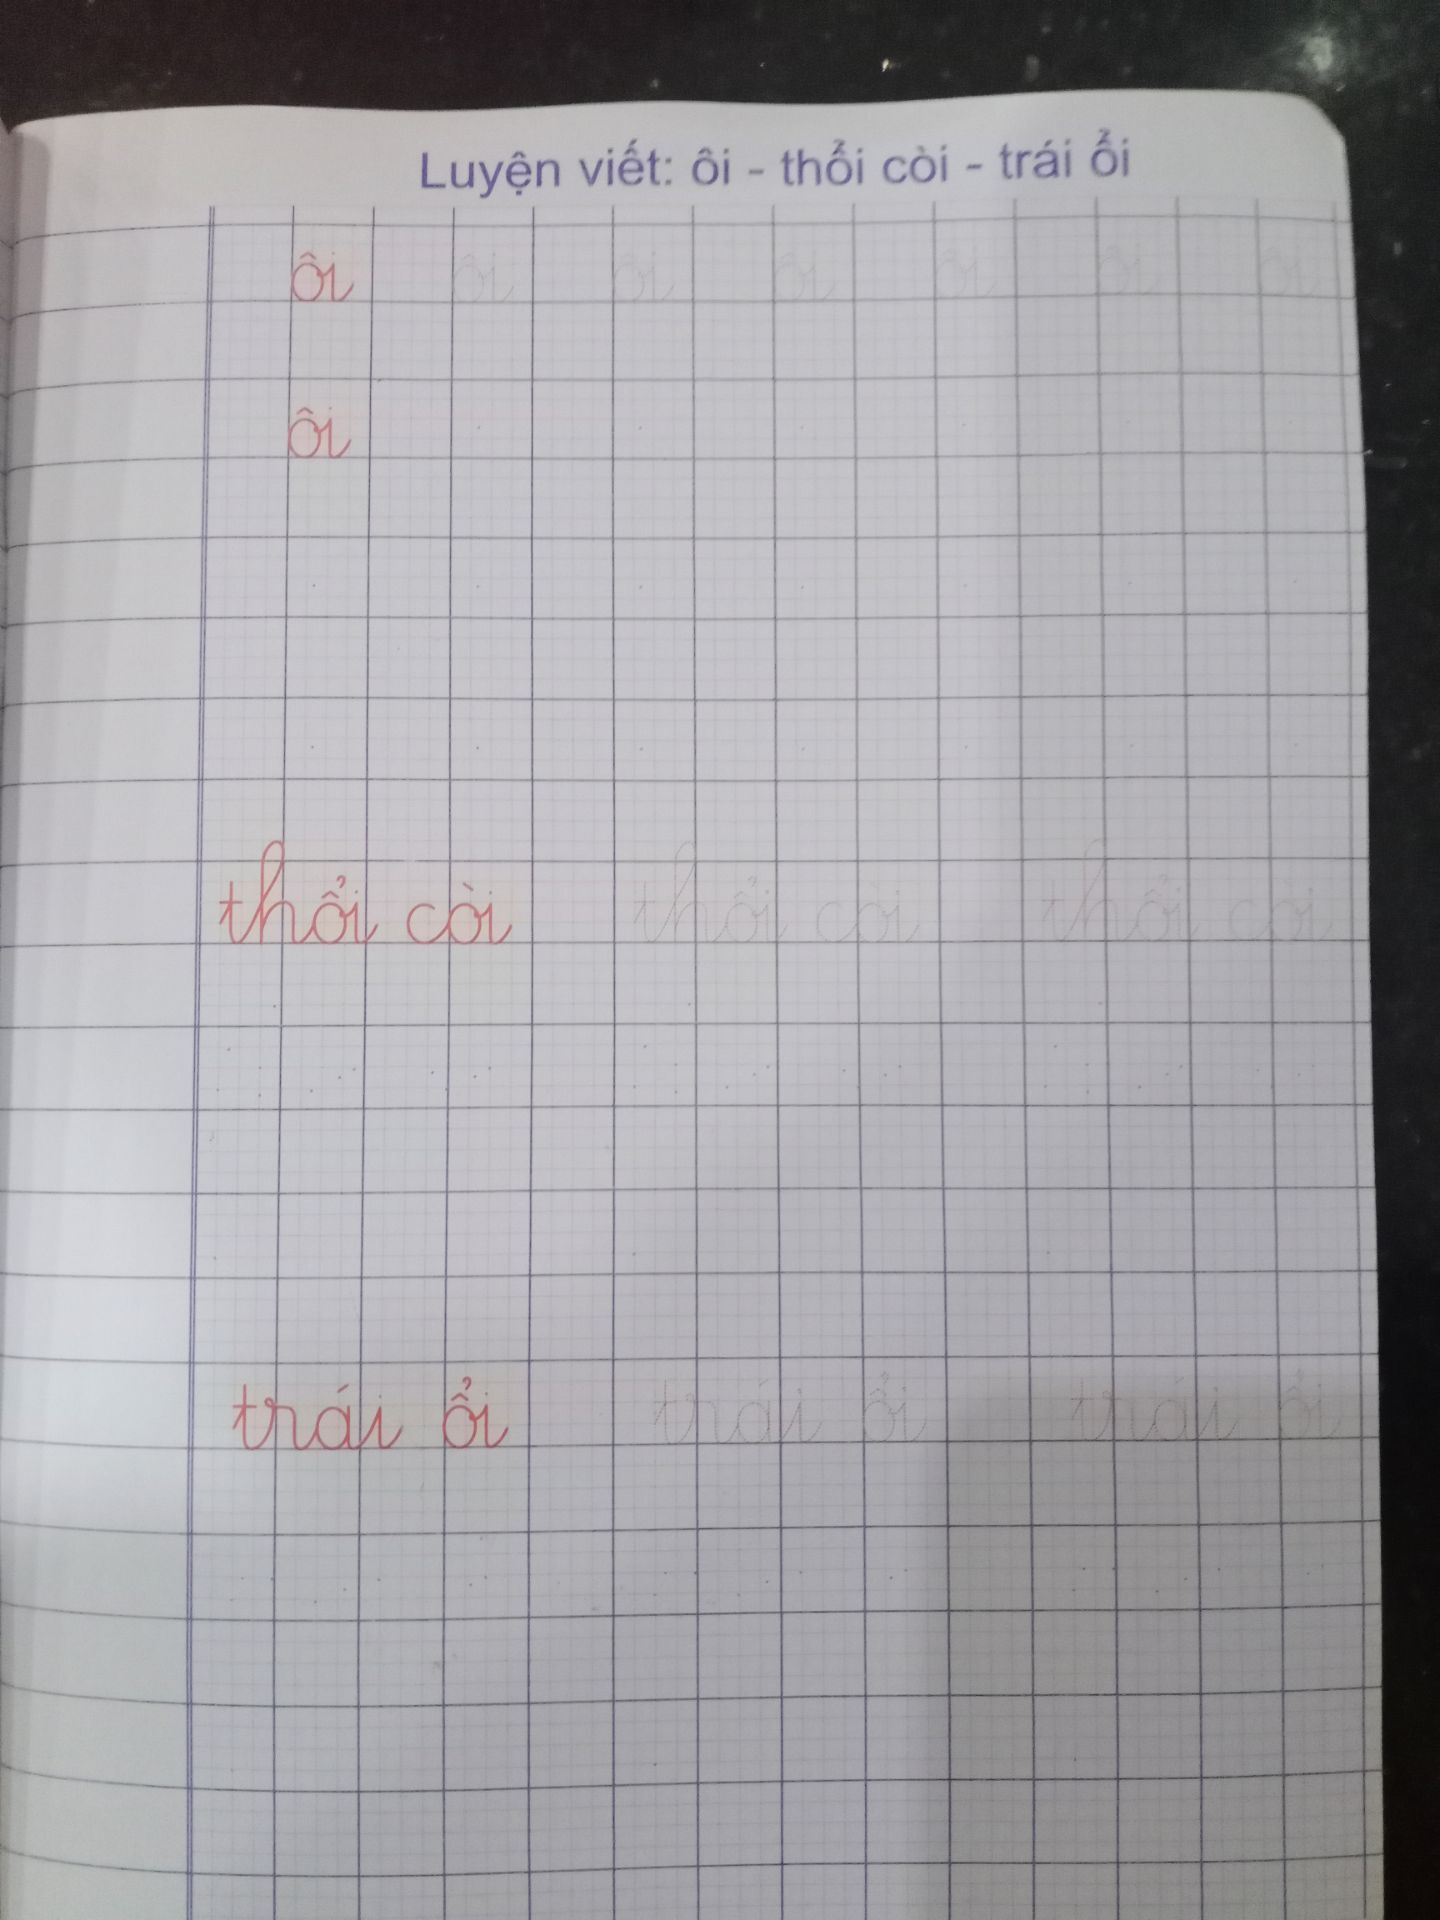 Luyện viết: ôi - thổi còi - trái ổi
ôi ôi ôi ôi ôi ôi ôi
ôi
thổi còi thổi còi thổi còi
trái ổi trái ổi trái ổi